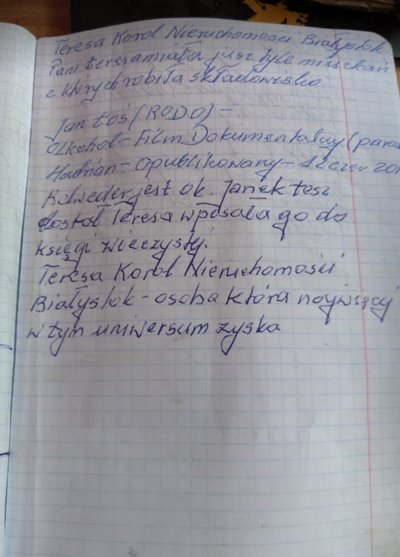 Teresa Korol Nieruchomości Białystok
Pani teresa miała już tyle mieszkań
z których robiła składowiska
Jan Łoś (RODO) -
Alkohol - Film Dokumentalny (para
Adrian - Opublikowany -
Belweder jest ok. Janek też
dostał Teresa wpisała go do
księgi wieczystej.
Teresa Korol Nieruchomości
Białystok - osoba która najwięcej
w tym uniwersum zyska